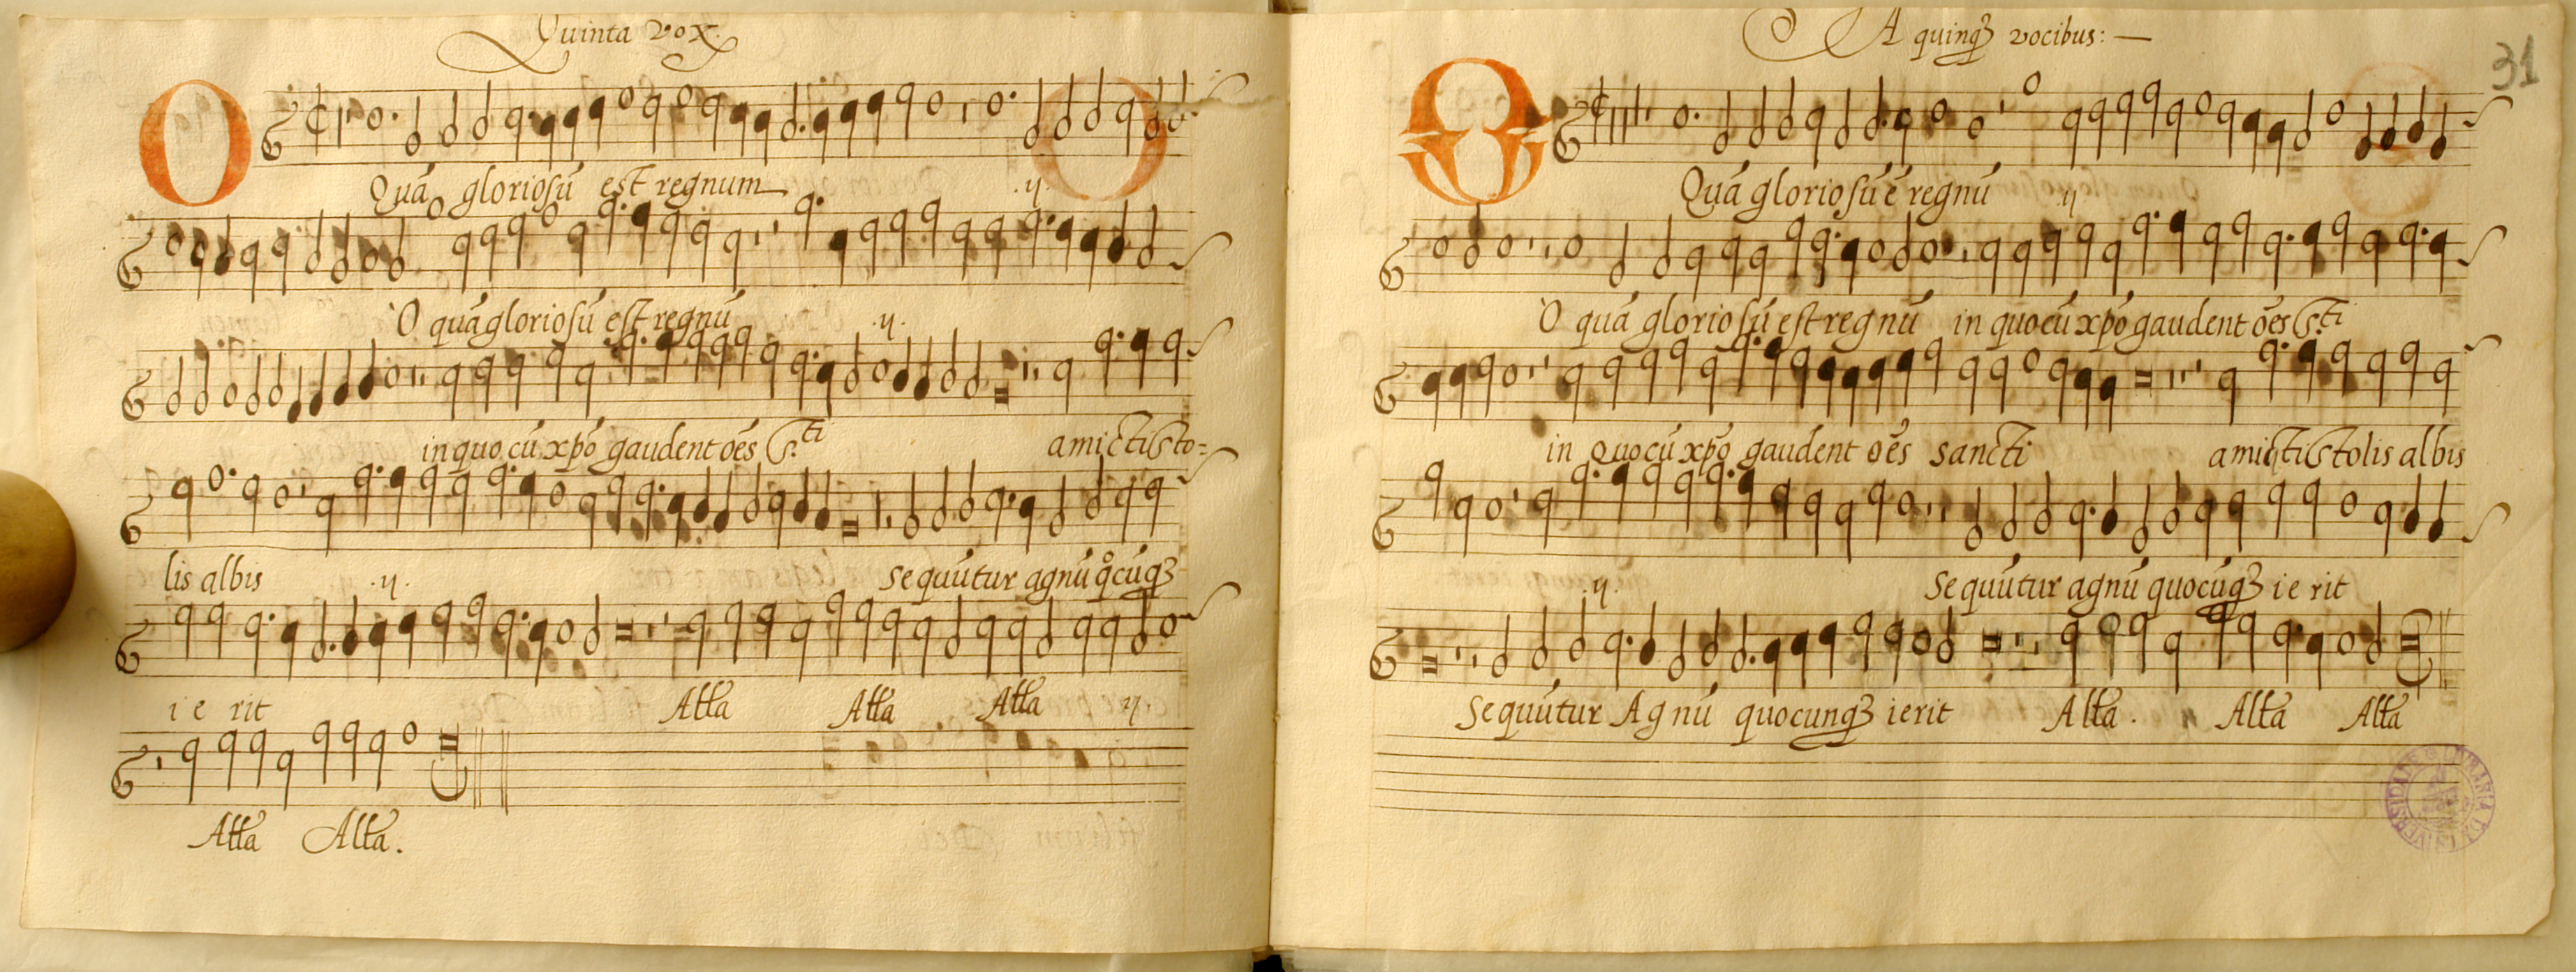 Quinta vox.
O
Quā gloriosū est regnum .ij.
O quā gloriosū est regnū .ij.
in quo cū xpō gaudent oēs S.ti amicti sto=
lis albis .ij. sequūtur agnū q̊cūqȝ
i e rit Alła Alła Alła ij
Alła Alła.
A quinqȝ vocibus:—
31
O
Quā gloriosū ē regnū ij
O quā gloriosū est regnū in quo cū xpō gaudent oēs S.ti
in quo cū xpō gaudent oēs sancti amicti stolis albis
.ij. sequūtur agnū quocūqȝ i e rit
Sequūtur Agnū quocunqȝ ierit Alła. ij Alła Alła